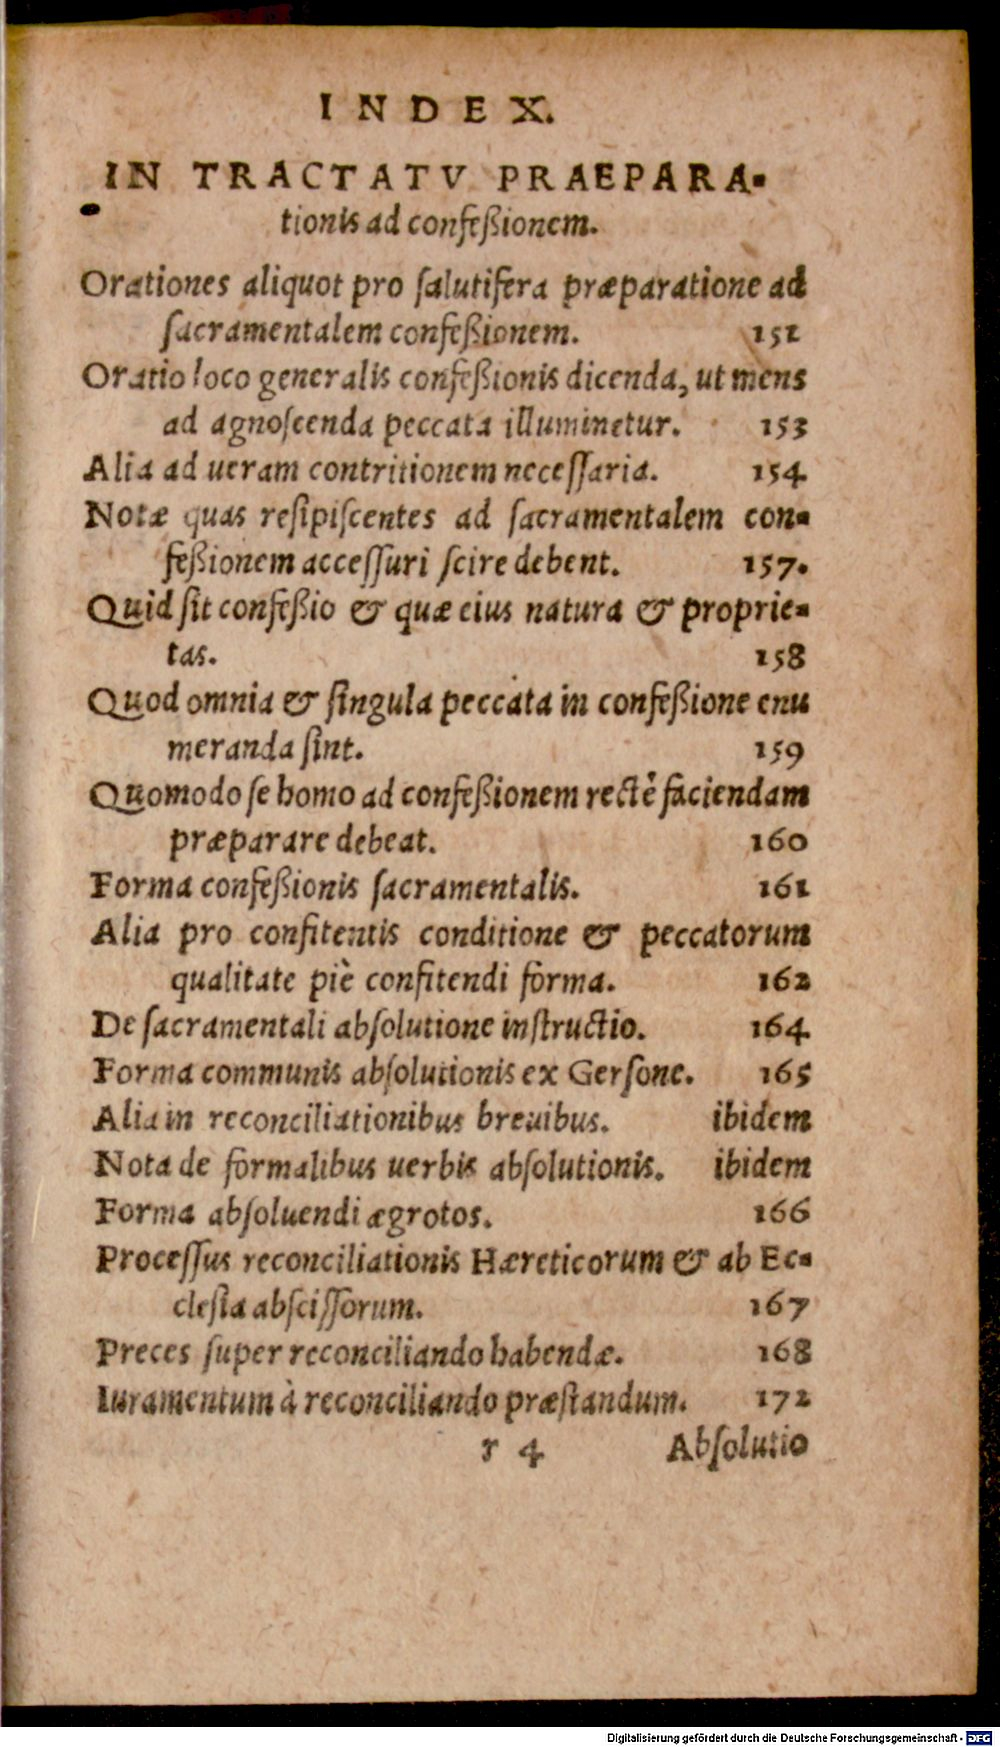 INDEX.
IN TRACTATV PRAEPARA-
tionis ad confeßionem.
Orationes aliquot pro ſalutifera præparatione ad
ſacramentalem confeßionem. 151
Oratio loco generalis confeßionis dicenda, ut mens
ad agnoſcenda peccata illuminetur. 153
Alia ad ueram contritionem neceſſaria. 154
Notæ quas reſipiſcentes ad ſacramentalem con-
feßionem acceſſuri ſcire debent. 157.
Quid ſit confeßio & quæ eius natura & proprie-
tas. 158
Quod omnia & ſingula peccata in confeßione enu
meranda ſint. 159
Quomodo ſe homo ad confeßionem rectè faciendam
præparare debeat. 160
Forma confeßionis ſacramentalis. 161
Alia pro confitentis conditione & peccatorum
qualitate piè confitendi forma. 162
De ſacramentali abſolutione inſtructio. 164
Forma communis abſolutionis ex Gerſone. 165
Alia in reconciliationibus breuibus. ibidem
Nota de formalibus uerbis abſolutionis. ibidem
Forma abſoluendi ægrotos. 166
Proceſſus reconciliationis Hæreticorum & ab Ec-
cleſia abſciſſorum. 167
Preces ſuper reconciliando habendæ. 168
Iuramentum à reconciliando præſtandum. 172
r 4 Abſolutio
Digitalisierung gefördert durch die Deutsche Forschungsgemeinschaft - DFG